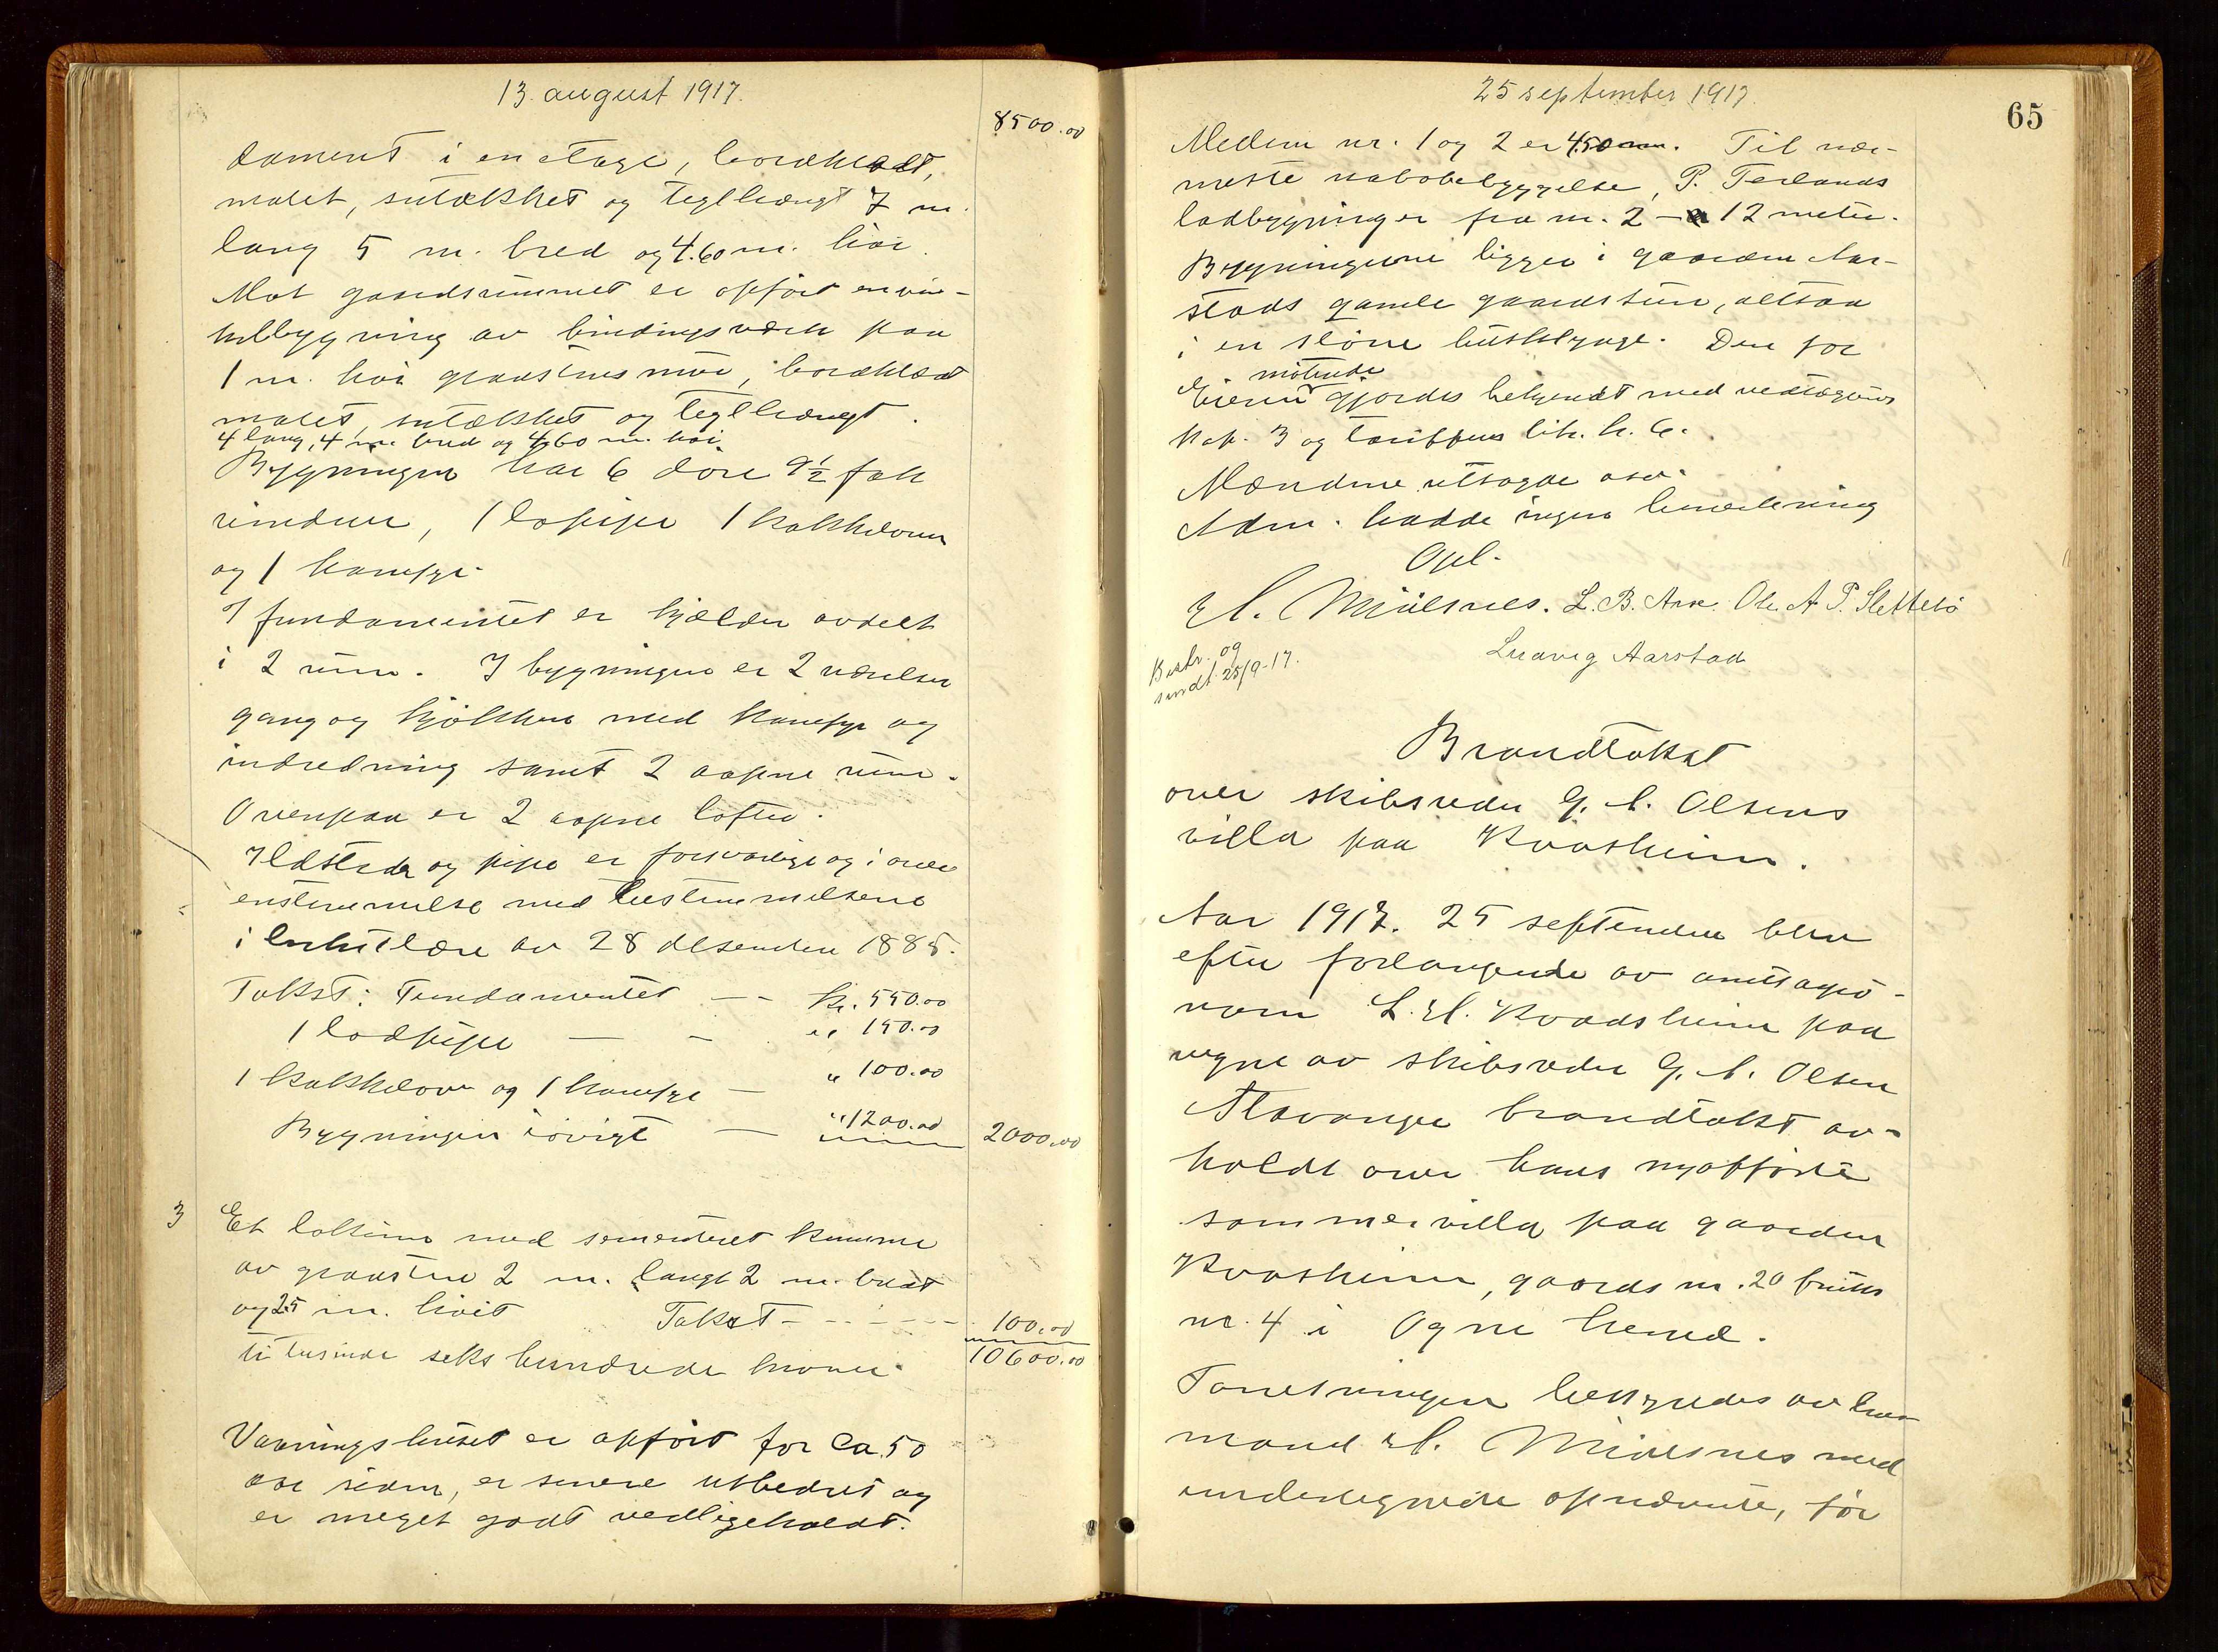 13. august 1917.
8500.00
dament i en etage, bordklædt,
malet, sutækket og teglhængt 7 m.
lang 5 m. bred og 4.60 m. høi.
Mot gaardsrummet er opført en vin-
kelbygning av bindingsverk paa
1 m. høi graastensmur, bordklædt
malet, sutækket og teglhængt.
4 lang, 4 m. bred og 4,60 m. høi.
Bygningen har 6 døre 9½ fak
vinduer, 1 lopipe 1 kakkelovn
og 1 komfyr.
I fundamentet er kjælder avdelt
i 2 rum. I bygningen er 2 værelser
gang og kjøkken med komfyr og
indredning samt 2 aapne rum.
Ovenpaa er 2 aapne lofter.
Ildsteder og pipe er forsvarlige og i over
enstemmelse med bestemmelserne
i cirkulære av 28 desember 1885.
Takst: Fundamentet — - kr. 550.00
1 lodpipe — - „ 150.00
1 kakkelovn og 1 komfyr — „ 100.00
Bygningen iøvrigt — „ 1200.00 2000.00
3 Et lokum med sementeret kumme
av graasten 2 m. langt 2 m. bredt
og 2.5 m. høit Takst - - - - - 100.00
ti tusinde seks hundrede kroner. 10600.00
Vaaningshuset er opført for ca. 50
aar siden, er senere utbedret og
er meget godt vedligeholdt.
25 september 1917.
65
Mellem nr. 1 og 2 er 4.50 m. Til nær-
meste nabobebyggelse, P. Terlands
ladbygninger fra nr. 2 - 12 meter.
Bygningerne ligger i gaarden Aar-
stads gamle gaardstun, altsaa
i en større husklynge. Den for
møtende
Eieren gjordes bekjendt med vedtægtens
kap. 3 og tariffens lit. h. 6.
Mændene uttagne osv.
Adm. hadde ingen bemerkning
Opl.
H. Mjølsnes. L. B. Aase. Ole A. P. Slettebø
Ludvig Aarstad
Beskr. og
sendt 25/9-17.
Brandtakst
over skibsreder G. A. Olsens
villa paa Kvasheim.
Aar 1917. 25 september blev
efter forlangende av anlægs-
L. H. Kvadsheim paa
vegne av skibsreder G. A. Olsen
Stavanger brandtakst av-
holdt over hans nyopførte
sommervilla paa gaarden
Kvasheim, gaards nr. 20 bruks
nr. 4 i Ogne herred.
Forretningen bestyredes av lens
mand H. Mjølsnes med
undertegnede opnævnte, før